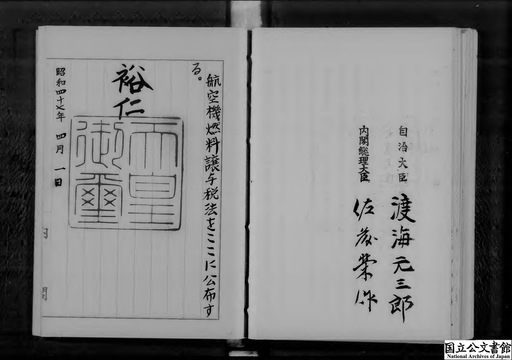 航空機燃料譲与税法をここに公布す
る。
裕仁
天皇
御璽
昭和四十七年四月一日
自治大臣 渡海元三郎
内閣総理大臣 佐藤榮作
国立公文書館
National Archives of Japan